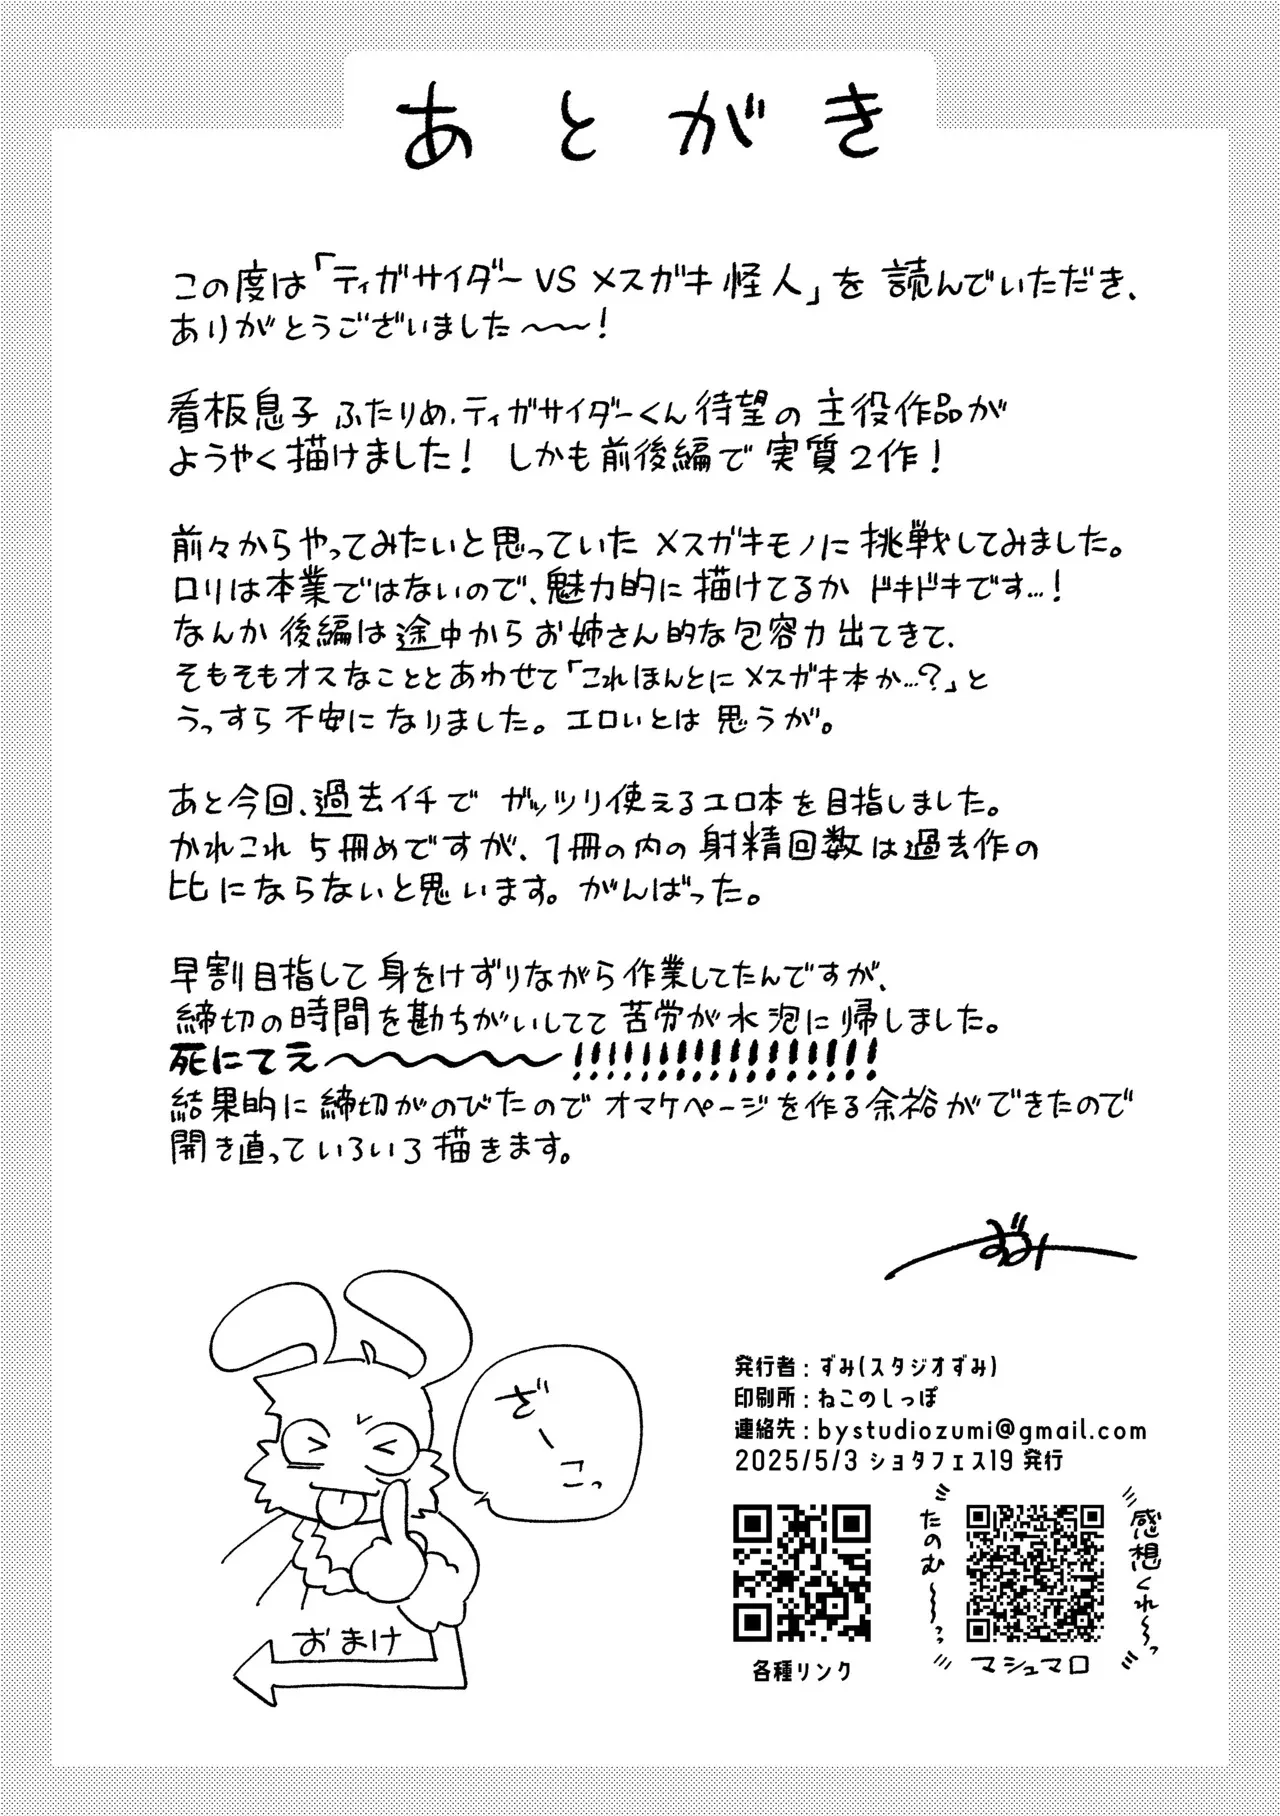 あとがき
この度は「ティガサイダーVSメスガキ怪人」を読んでいただき、
ありがとうございました〜〜！
看板息子ふたりめ、ティガサイダーくん待望の主役作品が
ようやく描けました！しかも前後編で実質2作！
前々からやってみたいと思っていたメスガキモノに挑戦してみました。
ロリは本業ではないので、魅力的に描けてるかドキドキです…！
なんか後編は途中からお姉さん的な包容力出てきて、
そもそもオスなこととあわせて「これほんとにメスガキ本か…？」と
うっすら不安になりました。エロいとは思うが。
あと今回、過去イチでガッツリ使えるエロ本を目指しました。
かれこれ5冊めですが、1冊の内の射精回数は過去作の
比にならないと思います。がんばった。
早割目指して身をけずりながら作業してたんですが、
締切の時間を勘ちがいしてて苦労が水泡に帰しました。
死にてえ〜〜〜〜〜!!!!!!!!!!!!!!!!!!
結果的に締切がのびたのでオマケページを作る余裕ができたので
開き直っていろいろ描きます。
ずみ
ざーこっ
おまけ
発行者：ずみ(スタジオずみ)
印刷所：ねこのしっぽ
連絡先：bystudiozumi@gmail.com
2025/5/3 ショタフェス19 発行
各種リンク
感想くれ〜っ
たのむ〜〜っ
マシュマロ